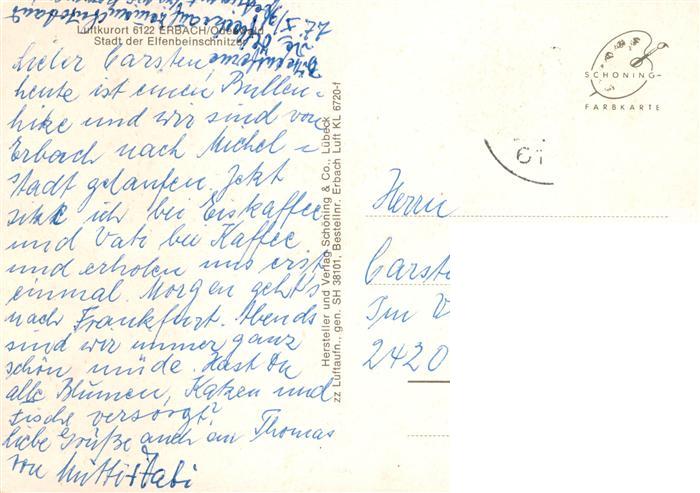 Luftkurort 6122 ERBACH/Odenwald
Stadt der Elfenbeinschnitzer
Lieber Carsten,
heute ist einen Bullen-
hitze und wir sind von
Erbach nach Michel-
stadt gelaufen. Jetzt
sitze ich bei Eiskaffee
und Vati bei Kaffee
und erholen uns erst
einmal. Morgen geht's
nach Frankfurt. Abends
sind wir immer ganz
schön müde. Hast Du
alle Blumen, Katzen und
Fische versorgt?
Liebe Grüße auch an Thomas
von Mutti + Vati
Hersteller und Verlag Schöning & Co., Lübeck
zz Luftaufn., gen. SH 38101, Bestellnr. Erbach Luft KL 6720-f
SCHÖNING-
FARBKARTE
61
Herrn
Carst
Im V
2420